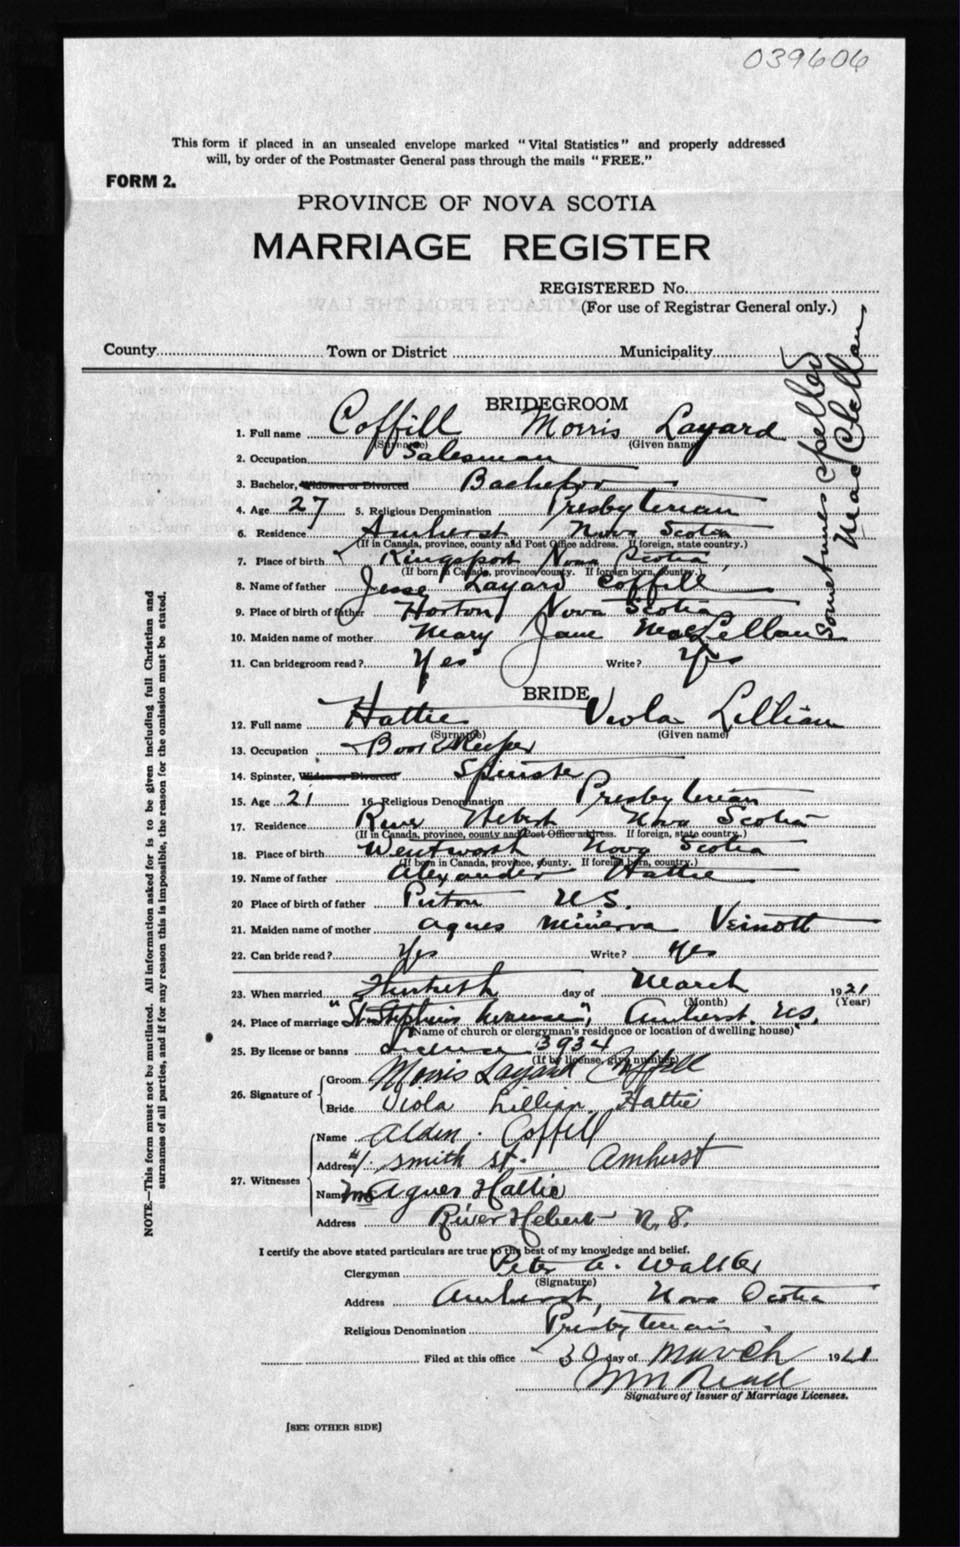 039606
This form if placed in an unsealed envelope marked "Vital Statistics" and properly addressed
will, by order of the Postmaster General pass through the mails "FREE."
FORM 2.
PROVINCE OF NOVA SCOTIA
MARRIAGE REGISTER
REGISTERED No.
(For use of Registrar General only.)
County Town or District Municipality
BRIDEGROOM
1. Full name Coffill Morris Layard
(Surname) (Given name)
2. Occupation Salesman
3. Bachelor, Widower or Divorced Bachelor
4. Age 27 5. Religious Denomination Presbyterian
6. Residence Amherst Nova Scotia
(If in Canada, province, county and Post Office address. If foreign, state country.)
7. Place of birth Kingsport Nova Scotia
(If born in Canada, province, county. If foreign born, country.)
8. Name of father Jesse Layard Coffill
9. Place of birth of father Horton, Nova Scotia
10. Maiden name of mother Mary Jane McLellan
sometimes spelled
MacClellan
11. Can bridegroom read? Yes Write? Yes
BRIDE
12. Full name Hattie Viola Lillian
(Surname) (Given name)
13. Occupation Book Keeper
14. Spinster, Widow or Divorced Spinster
15. Age 21 16. Religious Denomination Presbyterian
17. Residence River Hebert Nova Scotia
(If in Canada, province, county and Post Office address. If foreign, state country.)
18. Place of birth Wentworth Nova Scotia
(If born in Canada, province, county. If foreign born, country.)
19. Name of father Alexander Hattie
20 Place of birth of father Pictou N.S.
21. Maiden name of mother Agnes Minerva Veinott
22. Can bride read? Yes Write? Yes
23. When married Thirtieth day of March 1921
(Month) (Year)
24. Place of marriage "St. Stephens Manse", Amherst. N.S.
(Name of church or clergyman's residence or location of dwelling house)
25. By license or banns License 3934
(If by license, give number)
26. Signature of
Groom Morris Layard Coffill
Bride Viola Lillian Hattie
27. Witnesses
Name Alden. Coffill
Address smith st. Amherst
Name Mrs Agnes Hattie
Address River Hebert N.S.
I certify the above stated particulars are true to the best of my knowledge and belief.
Clergyman Peter A. Walker
(Signature)
Address Amherst, Nova Scotia
Religious Denomination Presbyterian.
Filed at this office 30 day of March 1921
Signature of Issuer of Marriage Licenses.
[SEE OTHER SIDE]
NOTE.—This form must not be mutilated. All information asked for is to be given including full Christian and
surnames of all parties, and if for any reason this is impossible, the reason for the omission must be stated.